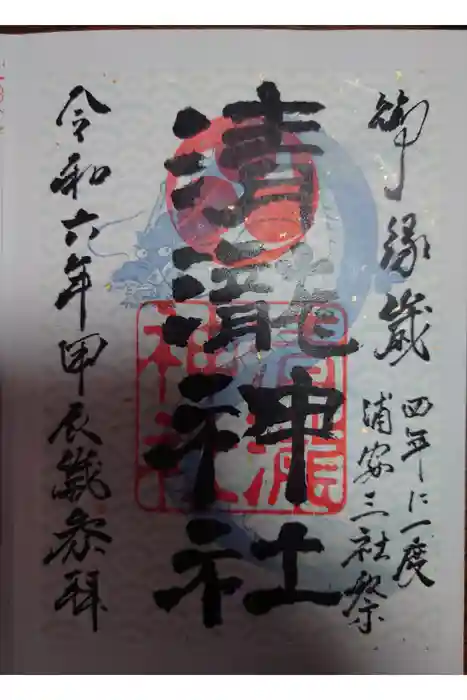 御縁歳
四年に一度
浦安三社祭
清瀧神社
清瀧神社
令和六年甲辰歳参拜